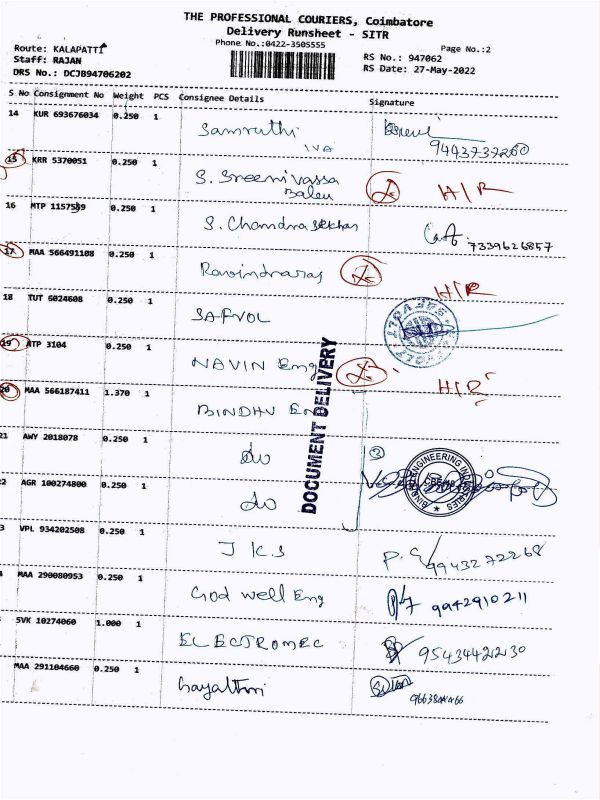 THE PROFESSIONAL COURIERS, Coimbatore
Delivery Runsheet - SITR
Phone No.:0422-3505555
Page No.:2
Route: KALAPATTI
Staff: RAJAN
DRS No.: DCJB94706202
RS No.: 947062
RS Date: 27-May-2022
S No Consignment No Weight PCS Consignee Details Signature
14 KUR 693676034 0.250 1 Samruthi
IVA
9443737260
15 KRR 5370051 0.250 1 S. Sreenivassa H/R
16 MTP 1157589 0.250 1 S. Chandrasekhar
7339626857
17 MAA 566491108 0.250 1 Ravindraraj H/R
18 TUT 6024608 0.250 1 SAFVOL
19 MTP 3104 0.250 1 NAVIN Eng H/R
20 MAA 566187411 1.370 1 BINDHU
21 AWY 2018078 0.250 1 do
2 AGR 100274800 0.250 1 do
3 VPL 934202508 0.250 1 JKS 9943272268
MAA 290080953 0.250 1 God well Eng 9942910211
SVK 10274060 1.000 1 ELECTROMEC 9543442230
MAA 291104660 0.250 1 Gayathri
DOCUMENT DELIVERY